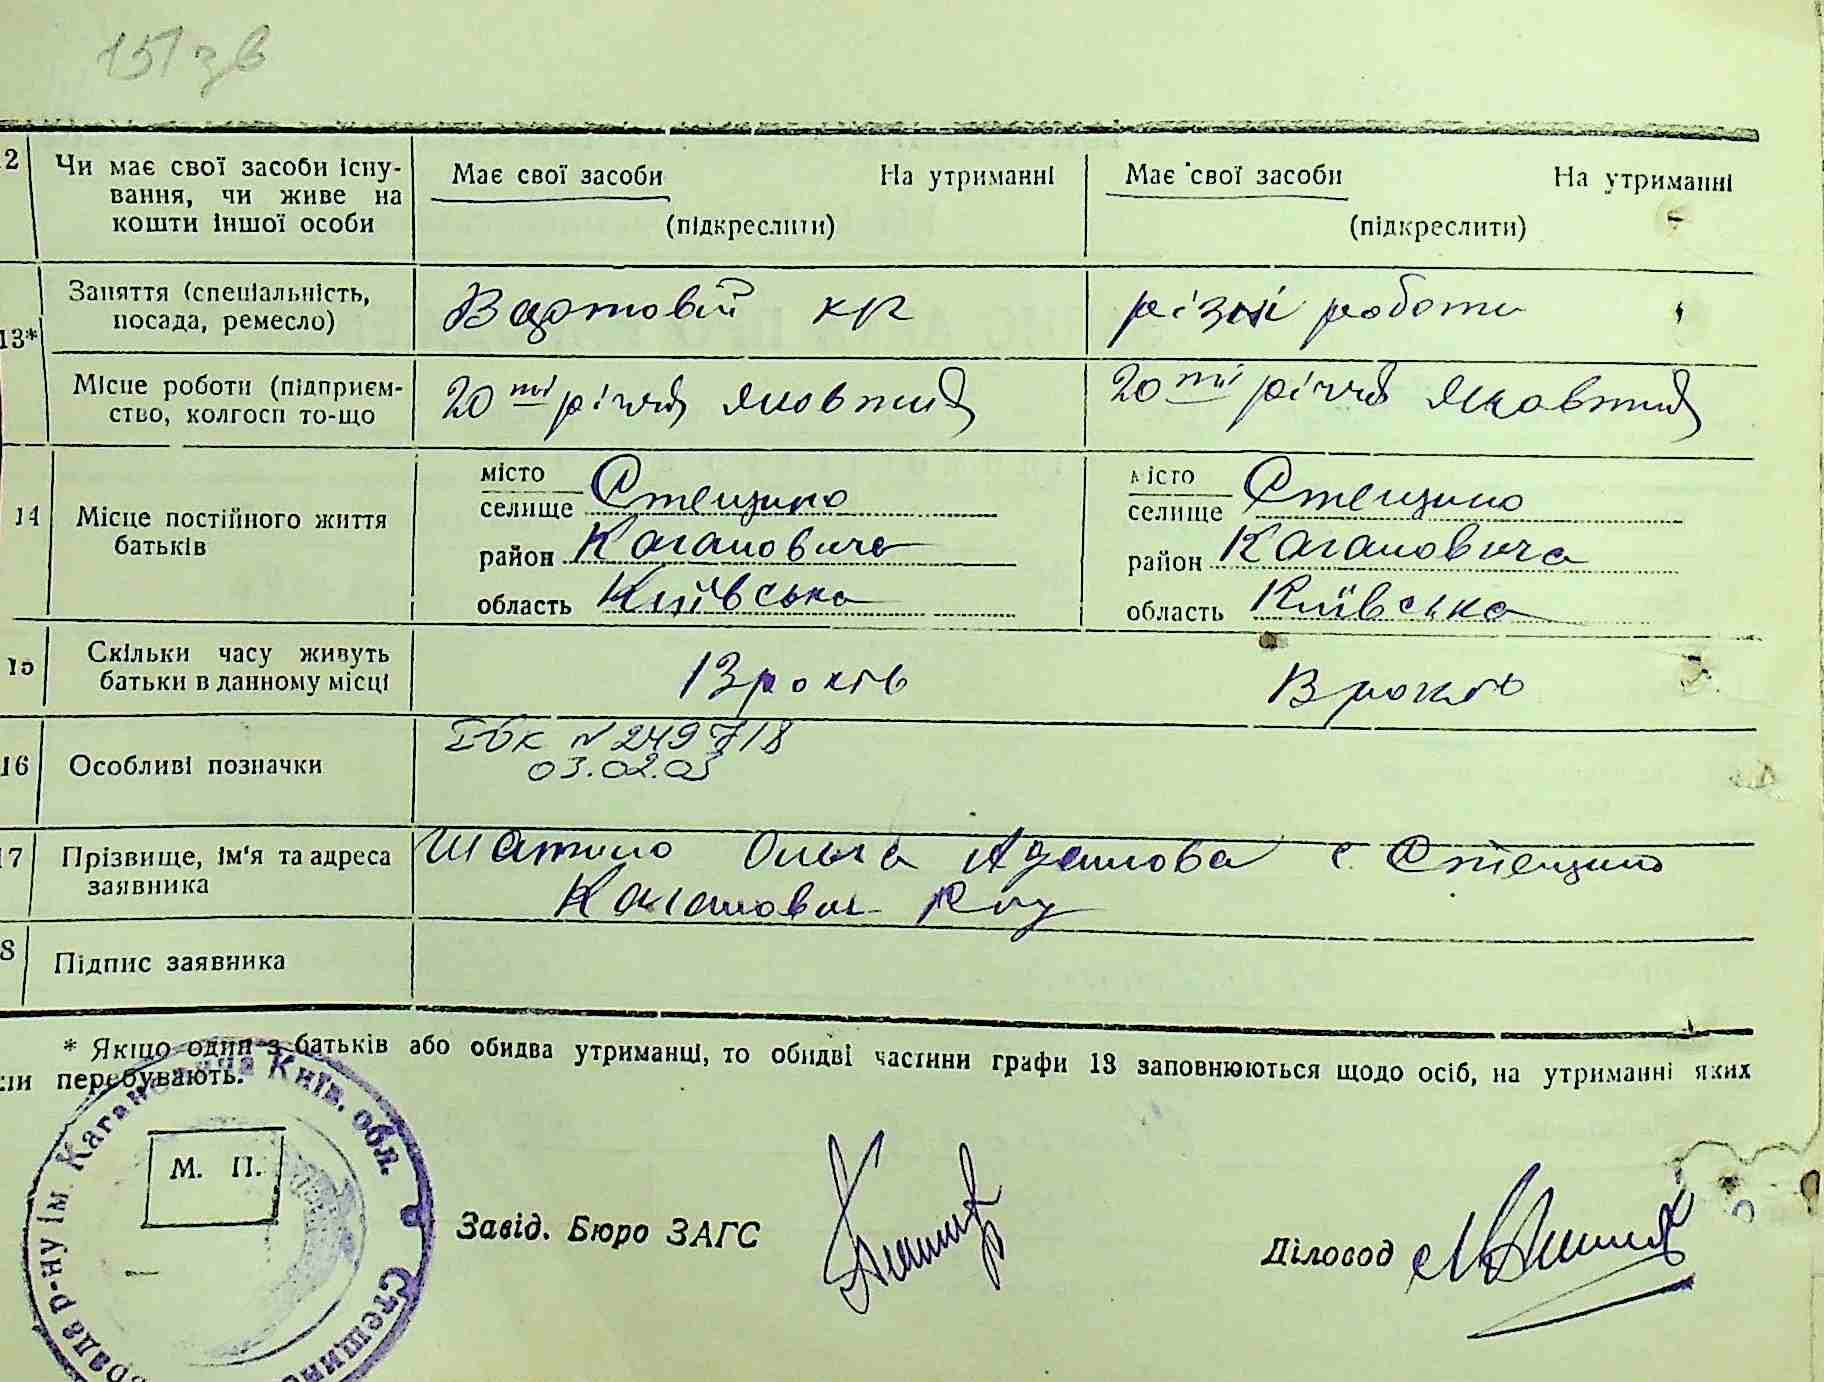 151 зв
2 Чи має свої засоби існу- Має свої засоби На утриманні Має свої засоби На утриманні
вання, чи живе на
кошти іншої особи (підкреслити) (підкреслити)
13* Заняття (спеціальність, Вартовий кр різні роботи
посада, ремесло)
Місце роботи (підприєм- 20 ті річчя Жовтня 20 ті річчя Жовтня
ство, колгосп то-що
14 Місце постійного життя
батьків
місто
селище Стещино
район Кагановича
область Київська
місто
селище Стещино
район Кагановича
область Київська
15 Скільки часу живуть
батьки в данному місці 13 років років
16 Особливі позначки
N 249718
03.02.03
17 Прізвище, ім'я та адреса Ольга Адамова с Стещино
заявника Каганович
8 Підпис заявника
* Якщо один з батьків або обидва утриманці, то обидві частини графи 13 заповнюються щодо осіб, на утриманні яких
ли перебувають.
рада р-ну ім. Кагановича Київ. обл. Стещин
М. П.
Завід. Бюро ЗАГС
Діловод